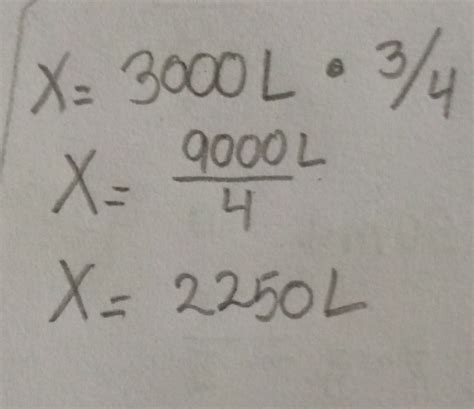 X= 3000L • 3/4
X= 9000L/4
X= 2250L